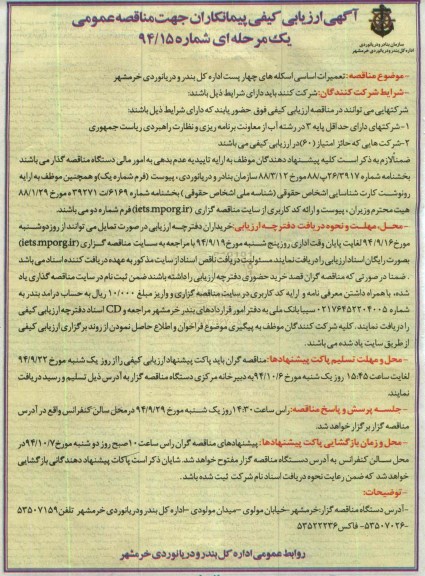 آگهی ارزیابی کیفی پیمانکاران جهت مناقصه عمومی
یک مرحله ای شماره ۹۴/۱۵
سازمان بنادر و دریانوردی
اداره کل بندر و دریانوردی خرمشهر
- موضوع مناقصه: تعمیرات اساسی اسکله های چهار پست اداره کل بندر و دریانوردی خرمشهر
- شرایط شرکت کنندگان: شرکت کنند باید دارای شرایط ذیل باشند:
شرکتهایی می توانند در مناقصه ارزیابی کیفی فوق حضور یابند که دارای شرایط ذیل باشند:
۱- شرکتهای دارای حداقل پایه ۳ در رشته آب از معاونت برنامه ریزی و نظارت راهبردی ریاست جمهوری
۲- شرکت هایی که حائز امتیاز (۶۰) در ارزیابی کیفی می باشند
ضمناً لازم به ذکر است کلیه پیشنهاد دهندگان موظف به ارایه تاییدیه عدم بدهی به امور مالی دستگاه مناقصه گذار می باشند
بخشنامه شماره ۲۶/۳۹۱۷پ/۸۸ مورخ ۸۸/۳/۱۲ سازمان بنادر و دریانوردی، پیوست (فرم شماره یک) و همچنین موظف به ارایه
رونوشت کارت شناسایی اشخاص حقوقی (شناسه ملی اشخاص حقوقی) بخشنامه شماره ۶۱۶۹/ت ۳۹۲۷۱ه مورخ ۸۸/۱/۲۹
هیت محترم وزیران، پیوست و ارائه کد کاربری از سایت مناقصه گزاری (iets.mporg.ir) (فرم شماره دو می باشند.
- محل، مهلت و نحوه دریافت دفترچه ارزیابی: خریداران دفترچه ارزیابی در صورت تمایل می توانند از روز دوشنبه
مورخ ۹۴/۹/۱۶ لغایت پایان وقت اداری روز پنج شنبه مورخ ۹۴/۹/۱۹ با مراجعه به سایت مناقصه گزاری (iets.mporg.ir)
بصورت رایگان اسناد ارزیابی را دریافت نمایند. مسئولیت دریافت ناقص اسناد از سایت مذکور به عهده دریافت کننده اسناد می باشد
. ضمنا در صورتی که مناقصه گران قصد خرید حضوری دفترچه ارزیابی را داشته باشند ضمن ثبت نام در سایت مناقصه گذاری یاد
شده، با همراه داشتن معرفی نامه و ارایه کد کاربری در سایت مناقصه گزاری و واریز مبلغ ۱۰/۰۰۰ ریال به حساب درآمد بندر به
شماره ۰۲۱۷۶۴۵۲۲۰۴۰۰۵ سیبا بانک ملی به دفتر امور قراردادهای بندر خرمشهر مراجعه و CD اسناد دفترچه ارزیابی کیفی
را دریافت نمایند. کلیه شرکت کنندگان موظف به پیگیری موضوع فراخوان و اطلاع حاصل نمودن از روند برگزاری ارزیابی کیفی
از طریق سایت یاد شده می باشند.
- محل و مهلت تسلیم پاکت پیشنهادها: مناقصه گران باید پاکت پیشنهاد ارزیابی کیفی را از روز یک شنبه مورخ ۹۴/۹/۲۲
لغایت ساعت ۱۵:۴۵ روز یک شنبه مورخ ۹۴/۱۰/۶ به دبیرخانه مرکزی دستگاه مناقصه گزار به آدرس ذیل تسلیم و رسید دریافت
نمایند.
- جلسه پرسش و پاسخ مناقصه: راس ساعت ۱۴:۳۰ روز یک شنبه مورخ ۹۴/۹/۲۹ در محل سالن کنفرانس واقع در آدرس
مناقصه گزار برگزار خواهد شد.
- محل و زمان بازگشایی پاکت پیشنهادها: پیشنهادهای مناقصه گران راس ساعت ۱۰ صبح روز دو شنبه مورخ ۹۴/۱۰/۷ در
محل سالن کنفرانس به آدرس دستگاه مناقصه گزار مفتوح خواهد شد. شایان ذکر است پاکات پیشنهاد دهندگانی بازگشایی
خواهد شد که ضمن رعایت نحوه دریافت اسناد نام شرکت ثبت شده باشد.
- توضیحات:
- آدرس دستگاه مناقصه گزار: خرمشهر - خیابان مولوی - میدان مولودی - اداره کل بندر و دریانوردی خرمشهر تلفن ۵۳۵۰۷۱۵۹
-۵۳۵۰۷۰۲۶ فاکس ۵۳۵۲۲۲۳۶
روابط عمومی اداره کل بندر و دریانوردی خرمشهر